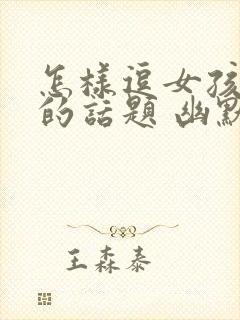 怎樣逗女孩
的話題 幽默
王森泰